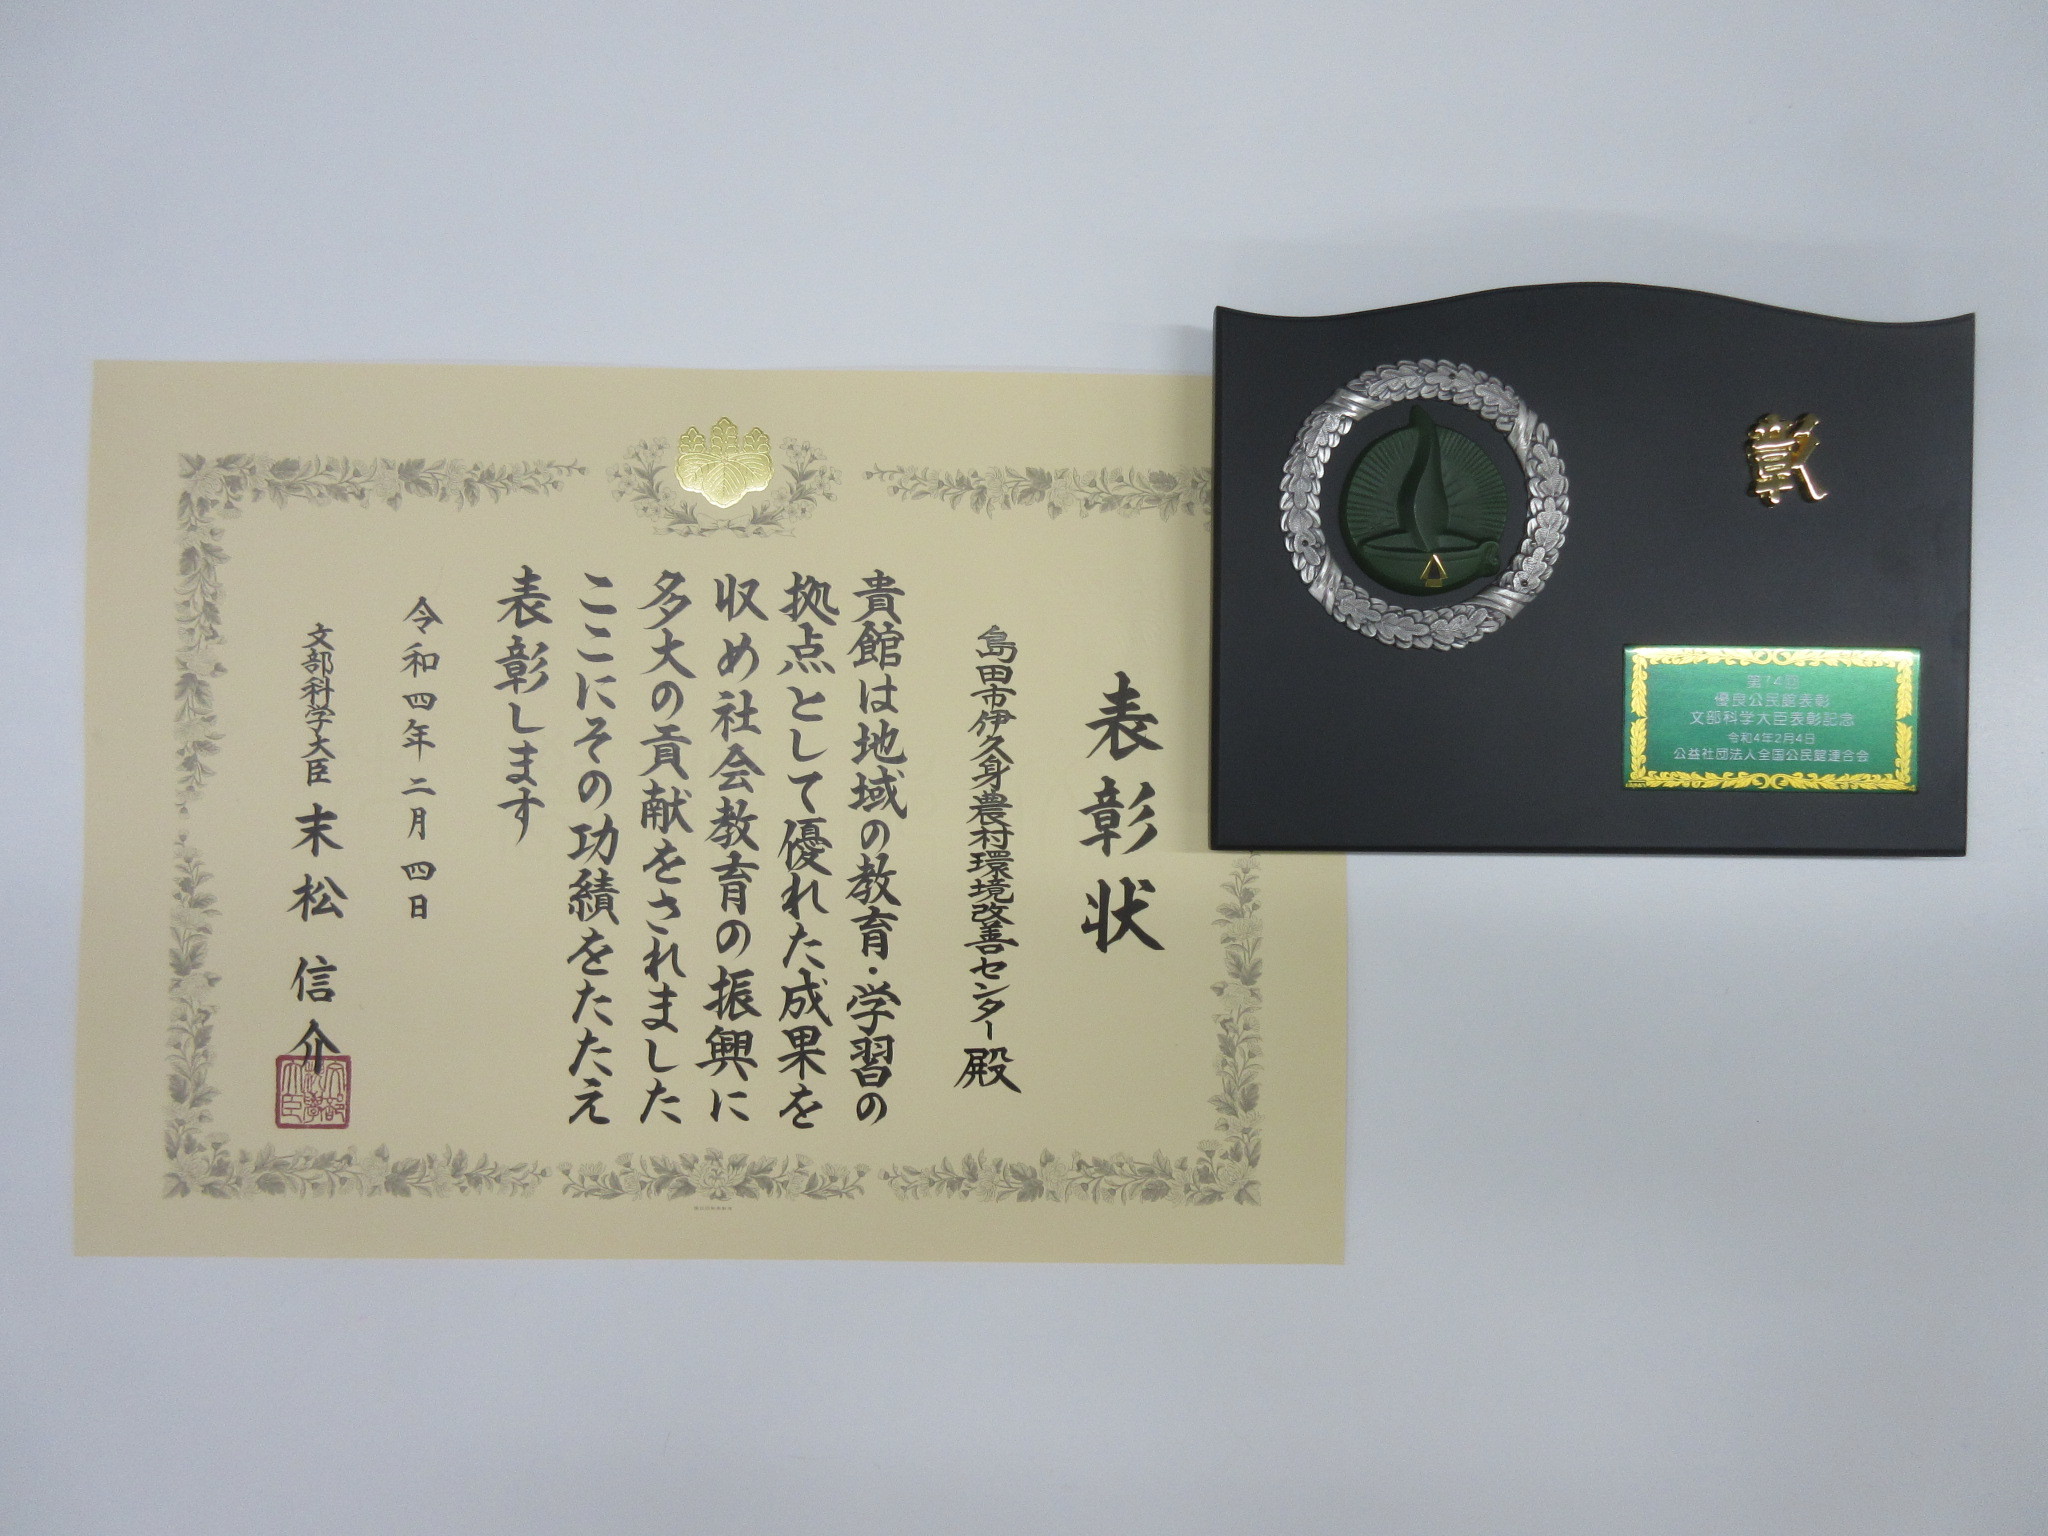 表彰状
島田市伊久身農村環境改善センター殿
貴館は地域の教育・学習の
拠点として優れた成果を
収め社会教育の振興に
多大の貢献をされました
ここにその功績をたたえ
表彰します
令和四年二月四日
文部科学大臣 末松信介
第74回
優良公民館表彰
文部科学大臣表彰記念
令和4年2月4日
公益社団法人全国公民館連合会